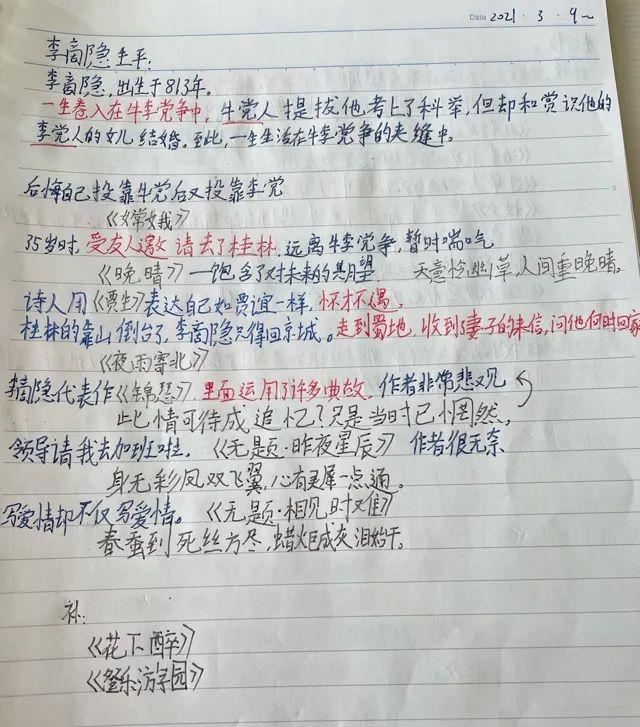 Date 2021 . 3 . 9~
李商隐生平:
李商隐,出生于813年。
一生卷入在牛李党争中,牛党人提拔他考上了科举,但却和赏识他的
李党人的女儿结婚。至此,一生生活在牛李党争的夹缝中。
后悔自己投靠牛党后又投靠李党
《嫦娥》
35岁时,受友人邀请去了桂林,远离牛李党争,暂时喘气
《晚晴》—饱含了对未来的期望 天意怜幽草,人间重晚晴。
诗人用《贾生》表达自己如贾谊一样,怀才不遇。
桂林的靠山倒台了,李商隐只得回京城。走到蜀地,收到妻子的来信,问他何时回家
《夜雨寄北》
李商隐代表作《锦瑟》里面运用了许多典故,作者非常悲观
此情可待成追忆?只是当时已惘然,
领导请我去加班啦。《无题·昨夜星辰》 作者很无奈
身无彩凤双飞翼,心有灵犀一点通。
写爱情却不仅写爱情。《无题·相见时难》
春蚕到死丝方尽,蜡炬成灰泪始干。
补:
《花下醉》
《登乐游原》